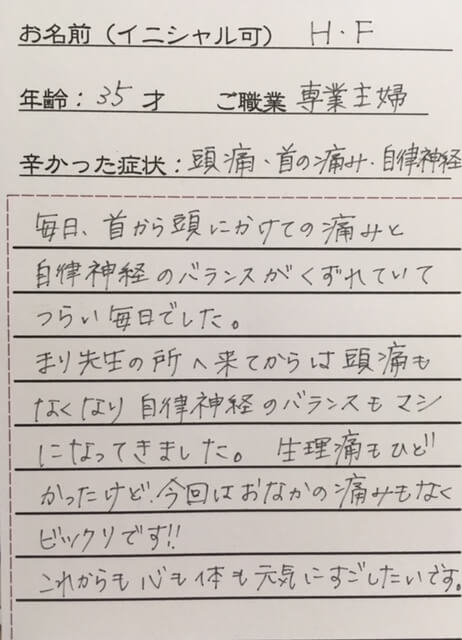 お名前（イニシャル可） H・F
年齢：35才 ご職業 専業主婦
辛かった症状：頭痛・首の痛み・自律神経
毎日、首から頭にかけての痛みと
自律神経のバランスがくずれていて
つらい毎日でした。
まり先生の所へ来てからは頭痛も
なくなり自律神経のバランスもマシ
になってきました。 生理痛もひど
かったけど、今回はおなかの痛みもなく
ビックリです!!
これからも心も体も元気にすごしたいです。